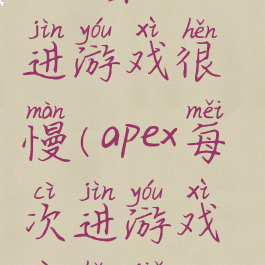 jìn yóu xì hěn
进游戏很
màn měi
慢(apex每
cì jìn yóu xì
次进游戏